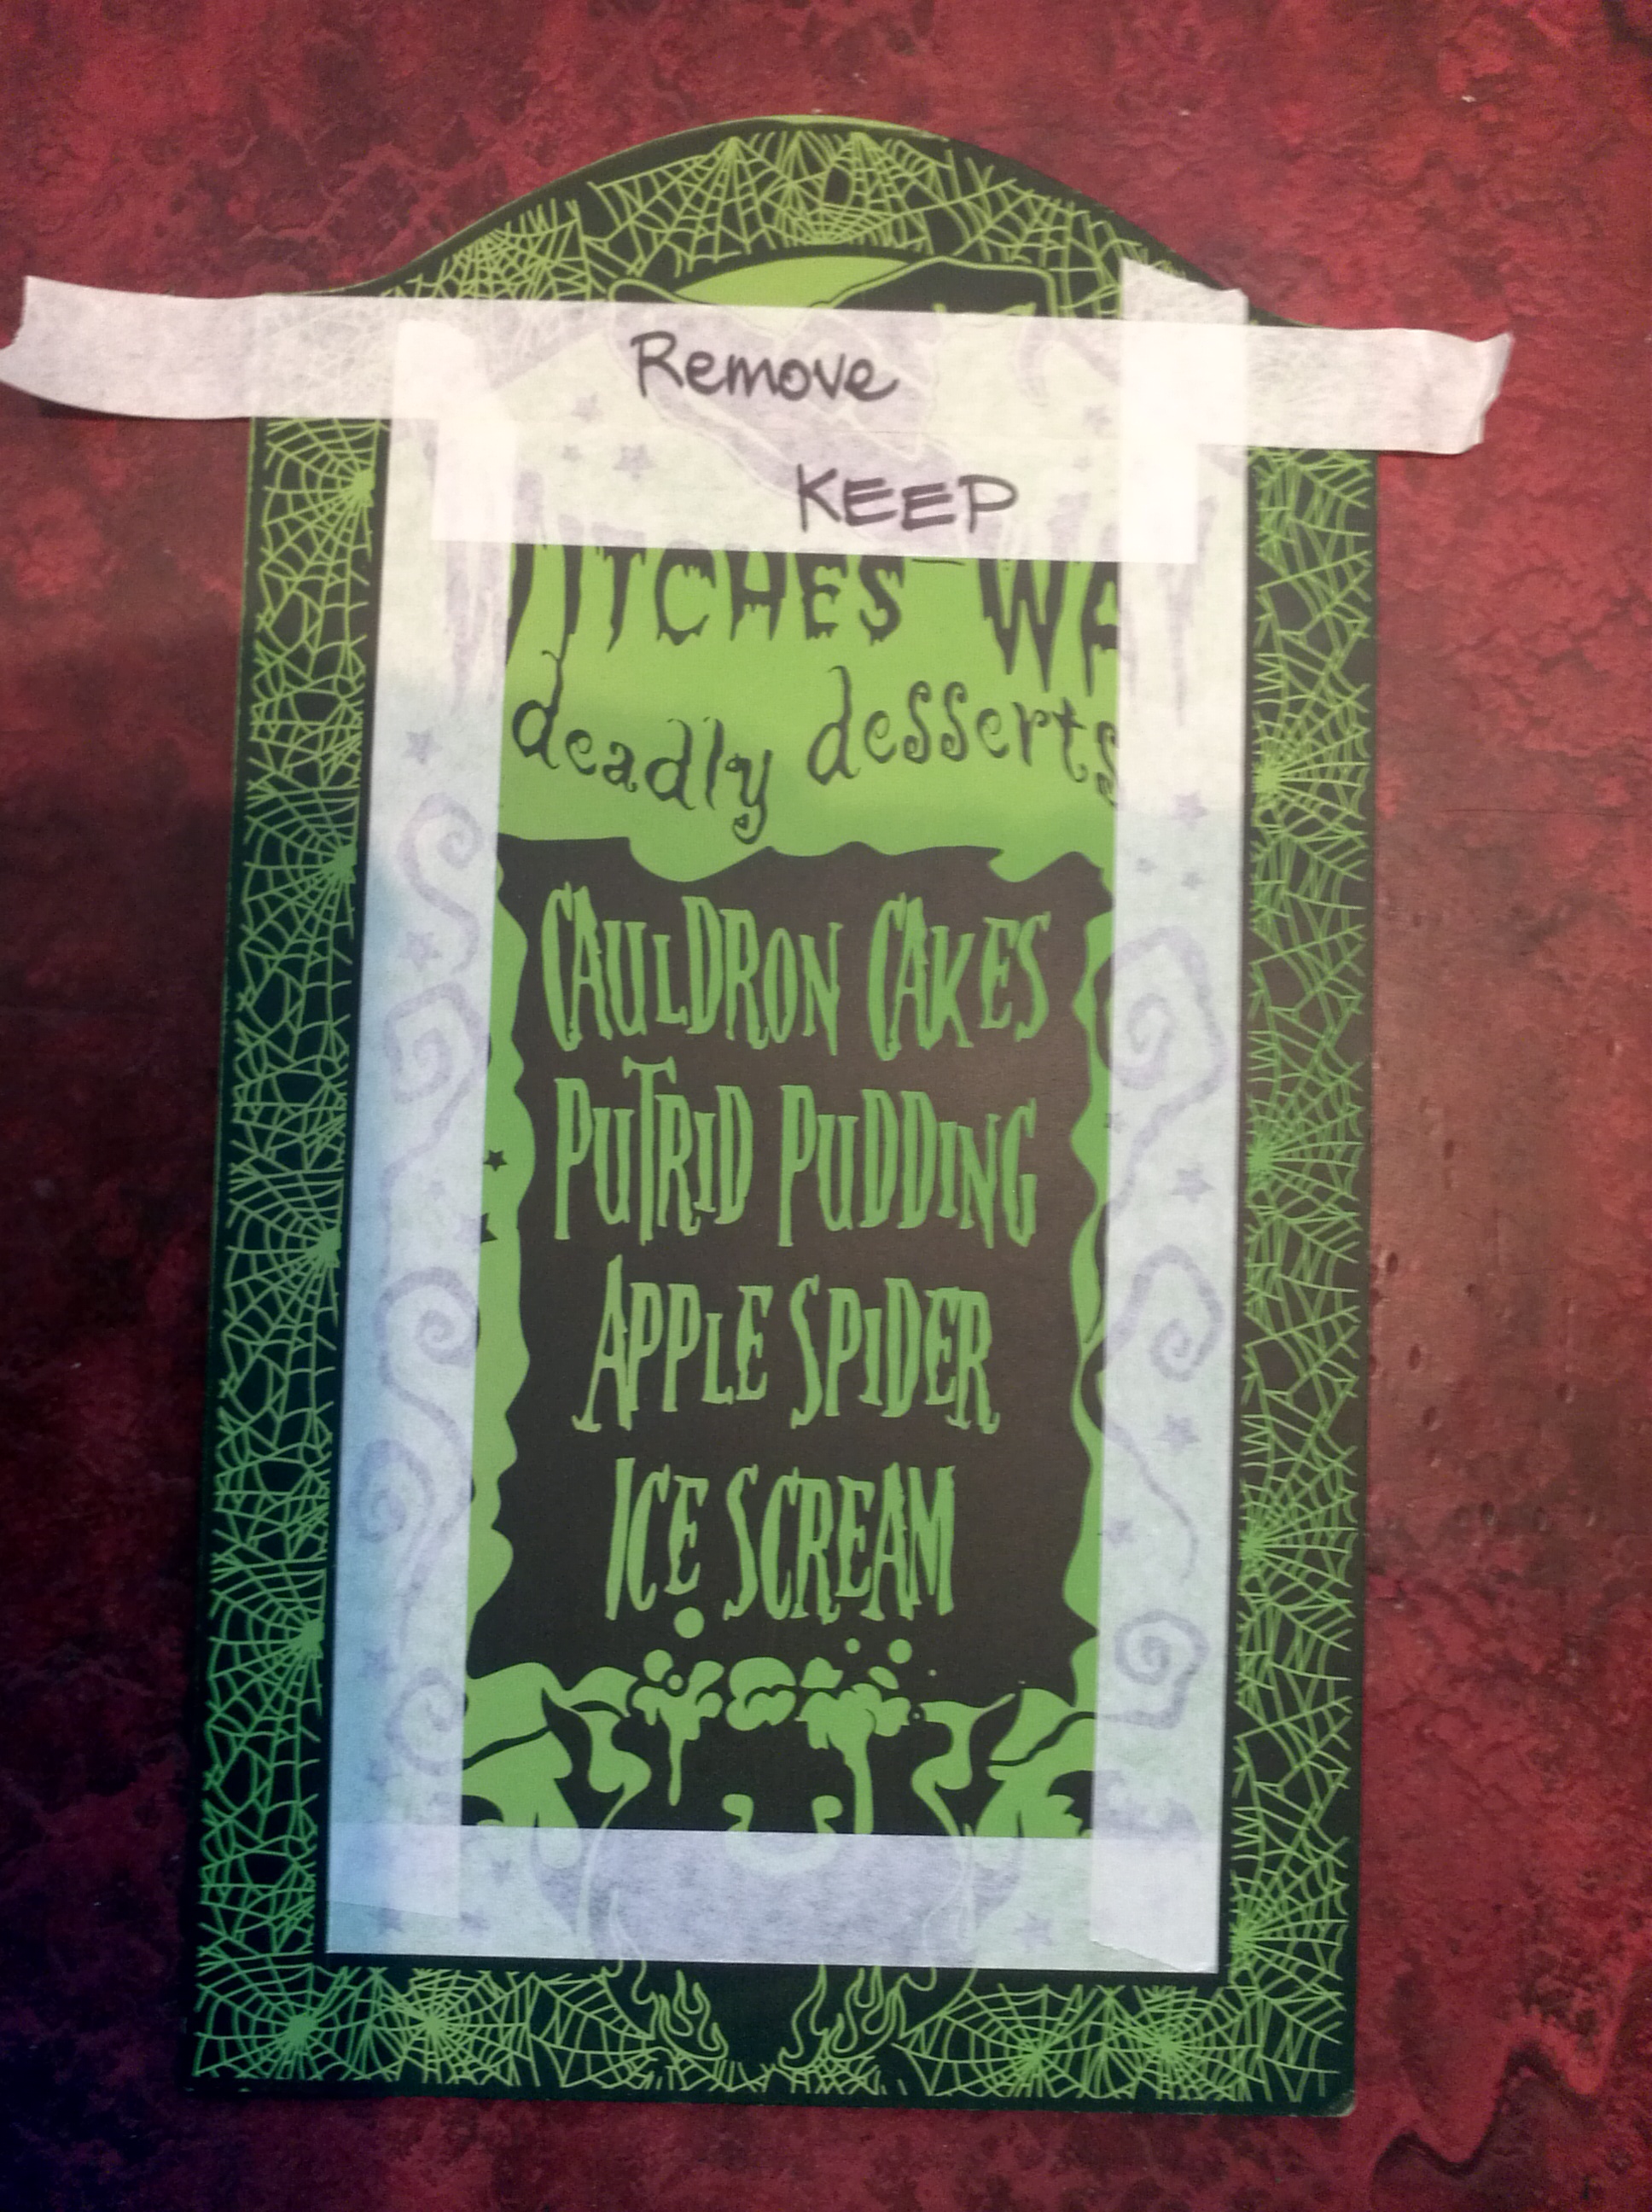 Remove
KEEP
ITCHES WA
deadly desserts
CAULDRON CAKES
PUTRID PUDDING
APPLE SPIDER
ICE SCREAM